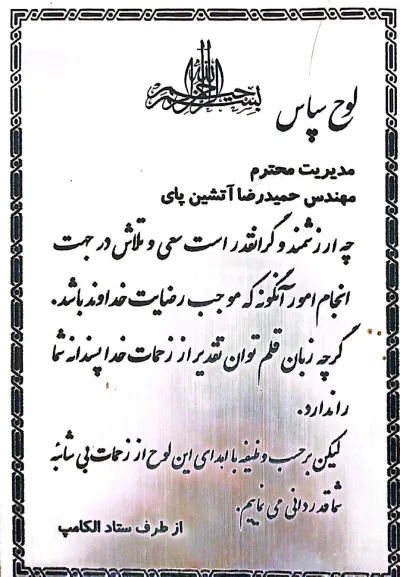 بسم الله الرحمن الرحیم
لوح سپاس
مدیریت محترم
مهندس حمیدرضا آتشین پای
چه ارزشمند و گرانقدر است سعی و تلاش در جهت
انجام امور آنگونه که موجب رضایت خداوند باشد.
گرچه زبان قلم توان تقدیر از زحمات خداپسندانه شما
را ندارد.
لیکن برحسب وظیفه با اهدای این لوح از زحمات بی شائبه
شما قدردانی می نماییم.
از طرف ستاد الکامپ